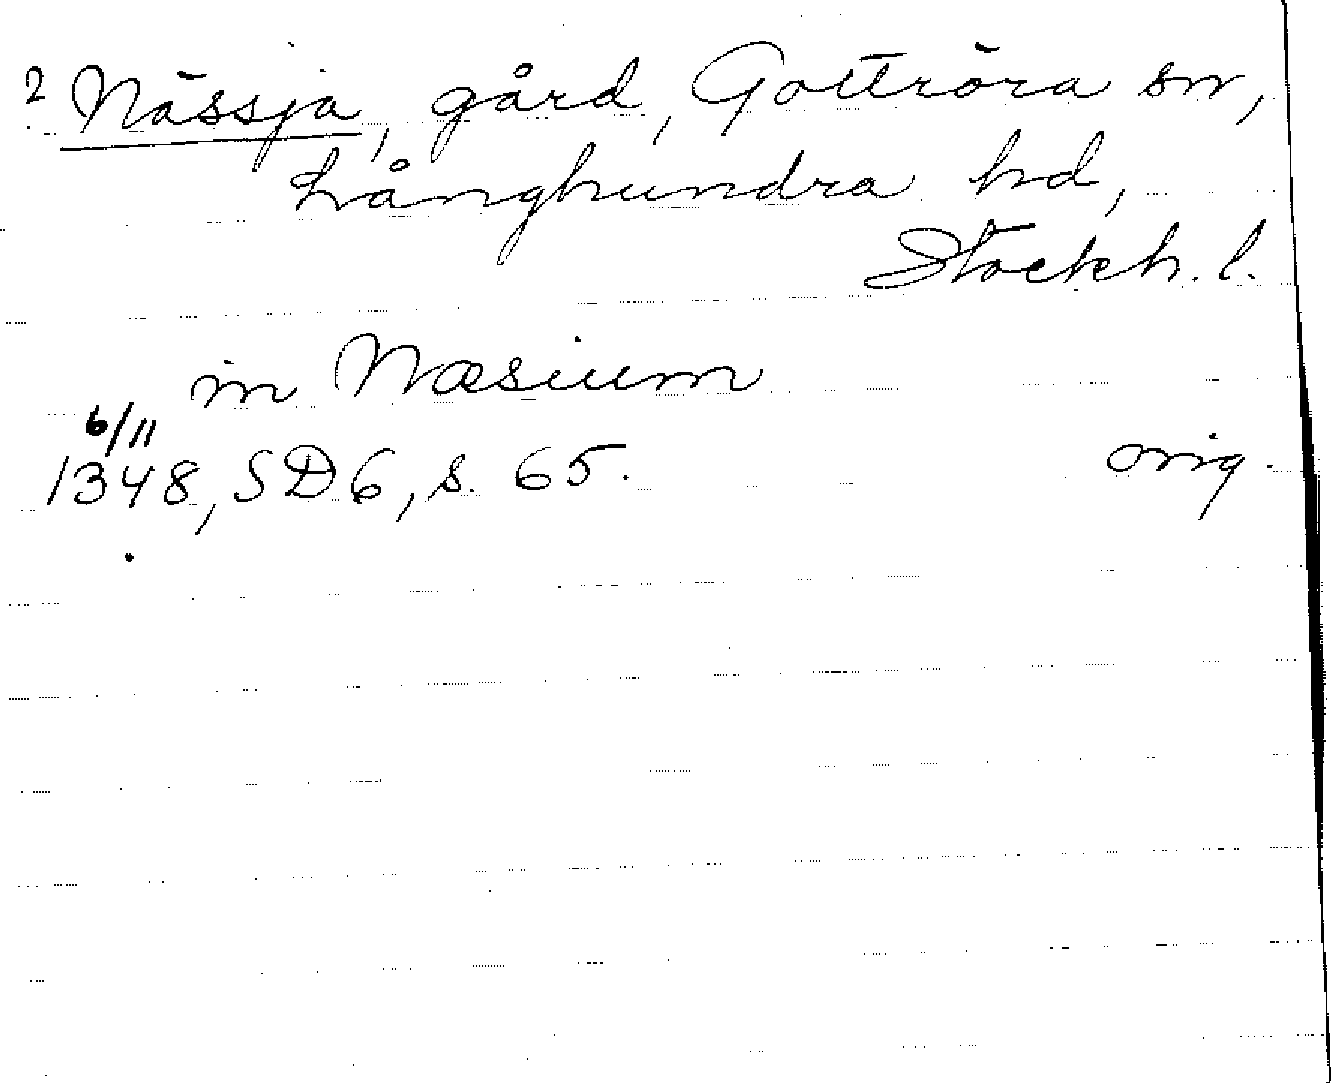 ? Nässja, gård, Gottröra sn,
Långhundra hd,
Stockh. l.
in Næsium
6/11
1348, SD6, s. 65. orig.